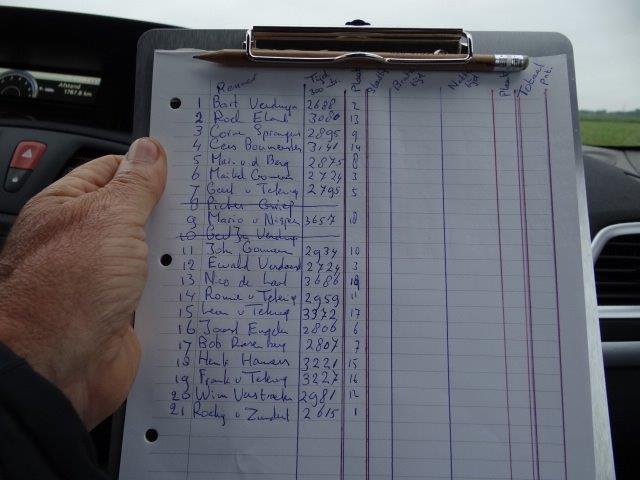 Afstand
1767.8 km
Renner Tijd Plaats Bruto tijd Netto tijd Plaats Totaal pnt.
300 m
1 Bart Verduyn 2688 2
2 Roel Eland 3080 13
3 Corne Sprangers 2895 9
4 Cees Bouwmeester 3141 14
5 Mari v d Berg 2875 8
6 Maikel Goemans 2724 3
7 Geert v Telening 2795 5
8 Pieter
9 Mario v Nispen 3657 18
10 Gert Jan Verduyn
11 John Goemans 2934 10
12 Ewald Verdaasd 2724 3
13 Nico de Laat 3686 19
14 Ronnie v Telening 2959 11
15 Leon v Telening 3372 17
16 Joost Engelen 2806 6
17 Bob Rosenberg 2807 7
18 Henk Hamers 3221 15
19 Frank v Telening 3227 16
20 Wim Verstraeten 2981 12
21 Rocky v Zundert 2615 1